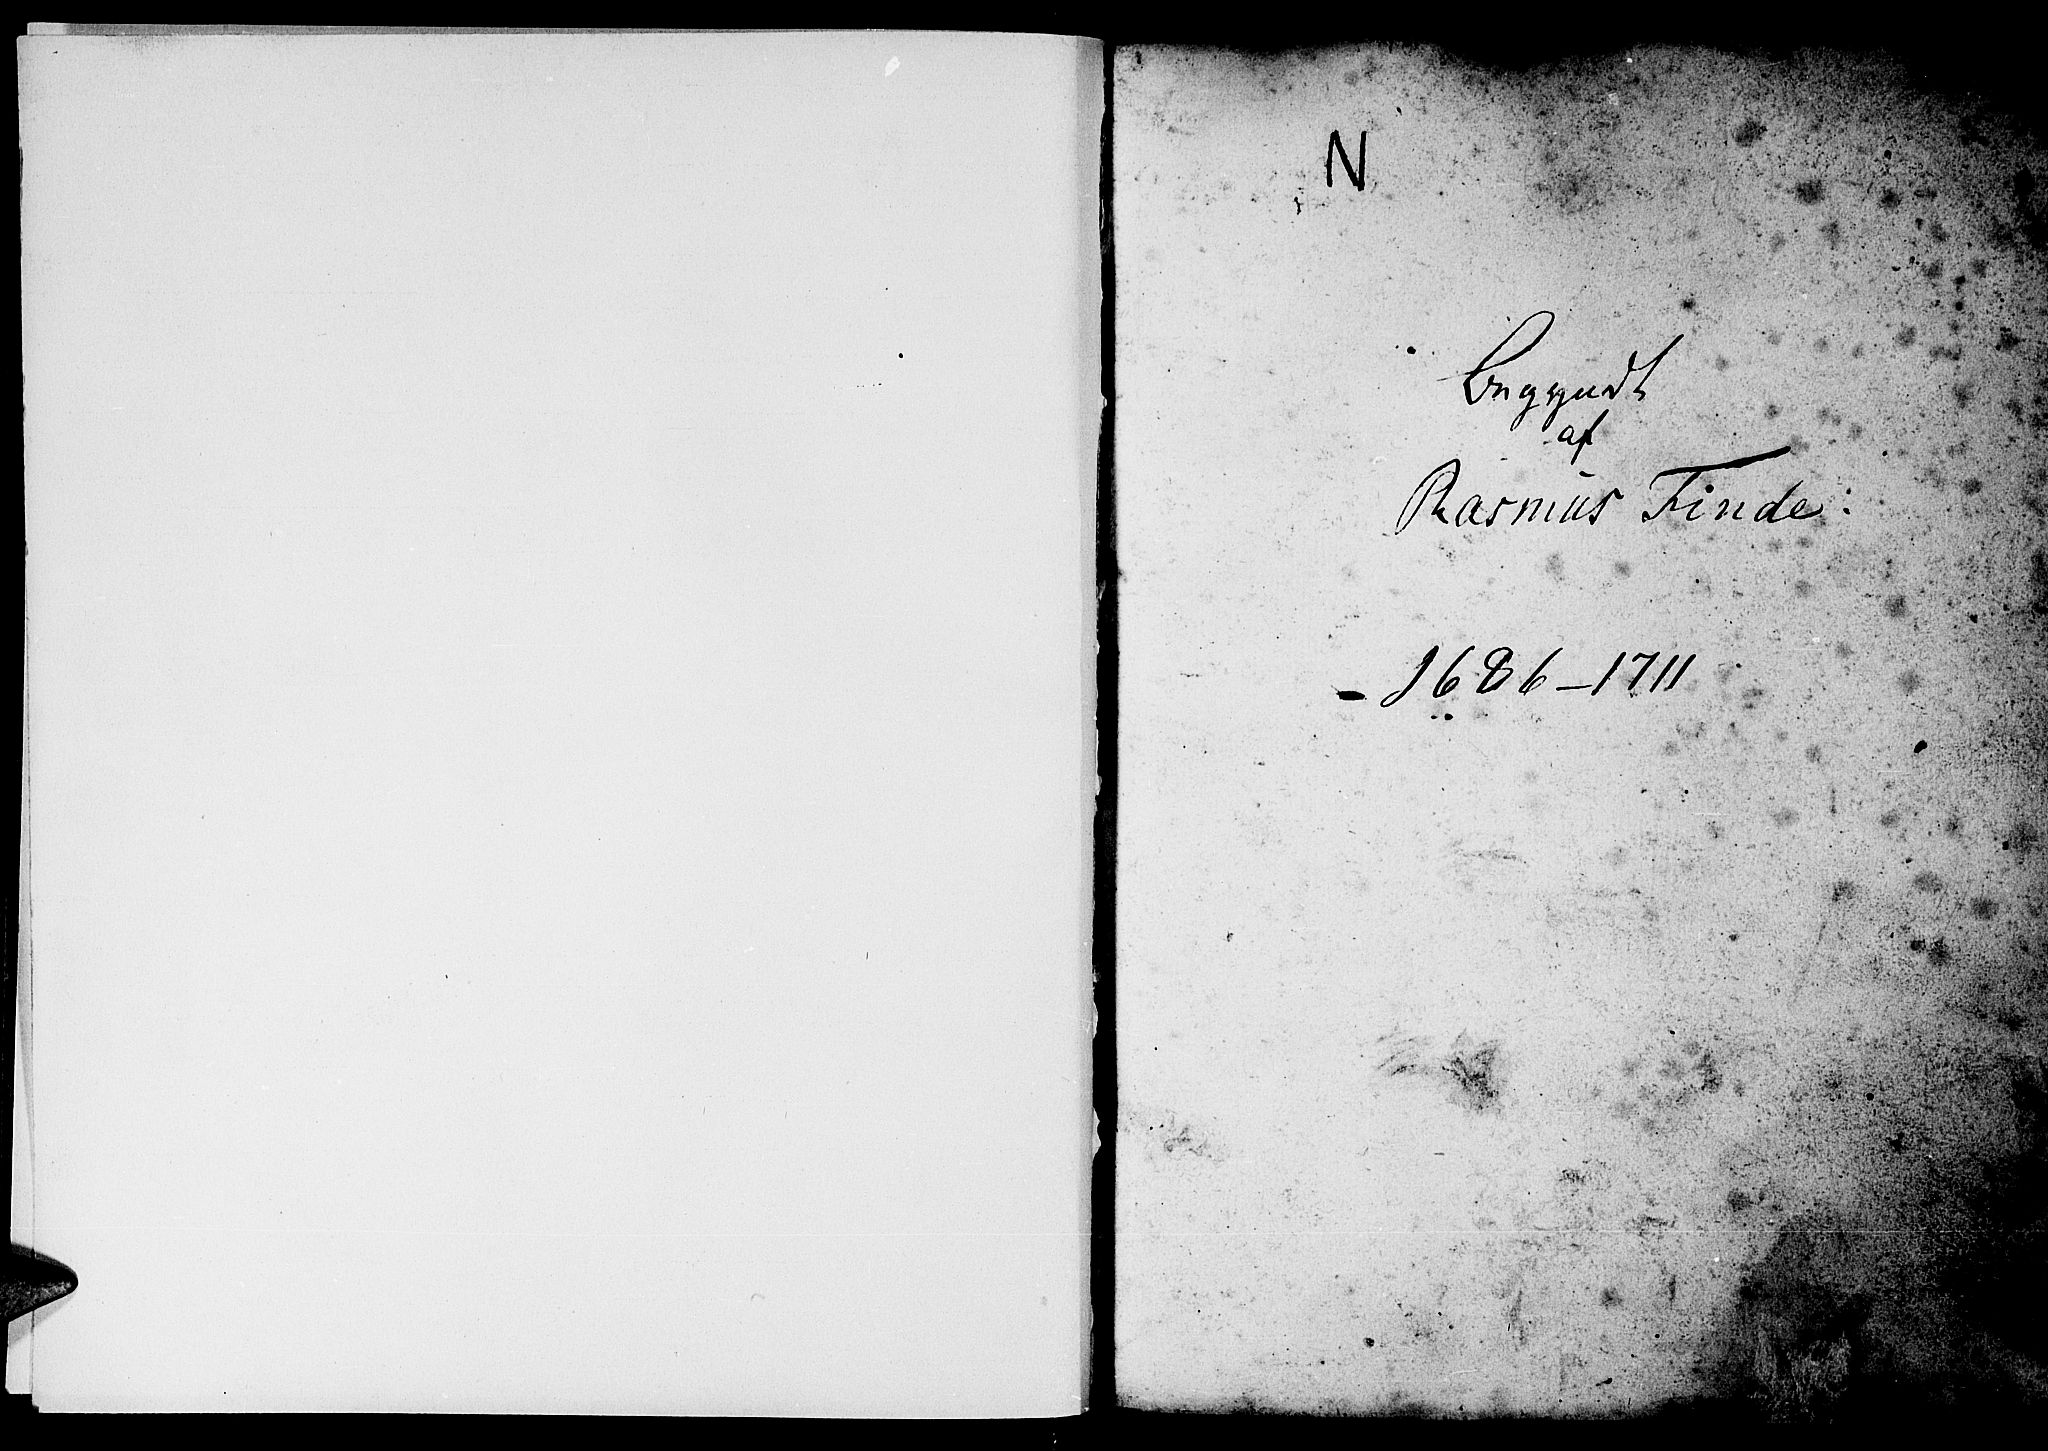 N
Begyndt
af
Rasmus Finde:
- 1686-1711